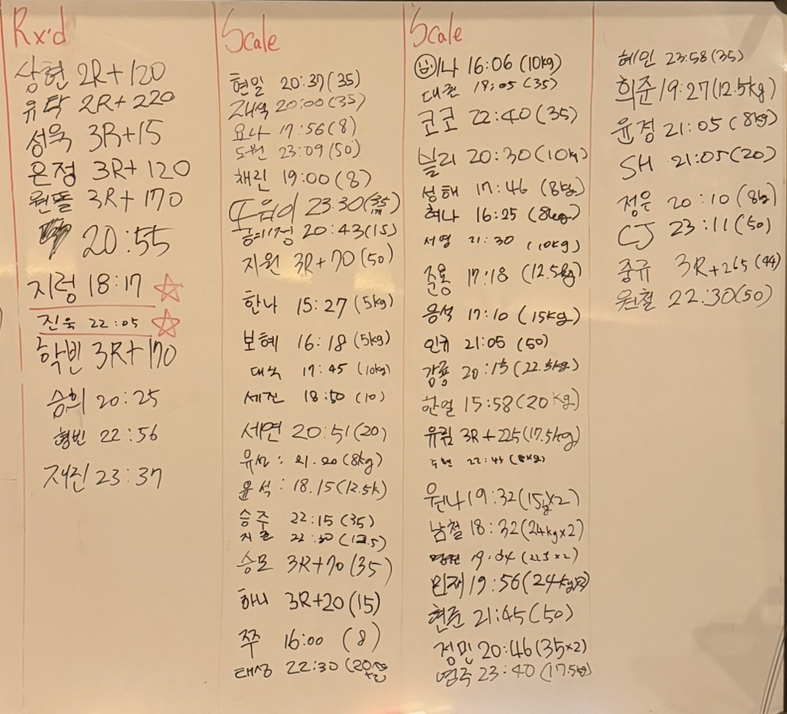 Rx'd
상현 2R+120
유탁 2R+220
성욱 3R+15
은정 3R+120
원돌 3R+170
20:55
지렁 18:17
진욱 22:05
학빈 3R+170
승희 20:25
형빈 22:56
재진 23:37
Scale
현일 20:37(35)
20:00(35)
요나 17:56(8)
도원 23:09(50)
채린 19:00(8)
23:30
20:43(15)
지원 3R+70(50)
한나 15:27(5kg)
보혜 16:18(5kg)
대욱 17:45(10kg)
세진 18:50(10)
세연 20:51(20)
21.20(8kg)
윤석: 18.15(12.5k)
승주 22:15(35)
22:30(12.5)
승모 3R+70(35)
하니 3R+20(15)
쭈 16:00 (8)
태성 22:30
Scale
16:06(10kg)
18:05(35)
코코 22:40(35)
블리 20:30(10k)
성해 17:46(8kg)
혜나 16:25(8kg)
서영 21:30(10kg)
준용 17:18(12.5kg)
용석 17:10(15kg)
인규 21:05(50)
강룡 20:13(22.5kg)
한얼 15:58(20kg)
유림 3R+225(17.5kg)
원나 19:32(15kg×2)
남철 18:32(24kg×2)
19:04(22.5×2)
민재 19:56
현준 21:45(50)
정민 20:46(35×2)
23:40(17.5kg)
혜인 23:58(35)
희준 19:27(12.5kg)
윤정 21:05(8kg)
SH 21:05(20)
정은 20:10
CJ 23:11(50)
중규 3R+265(44)
원철 22:30(50)